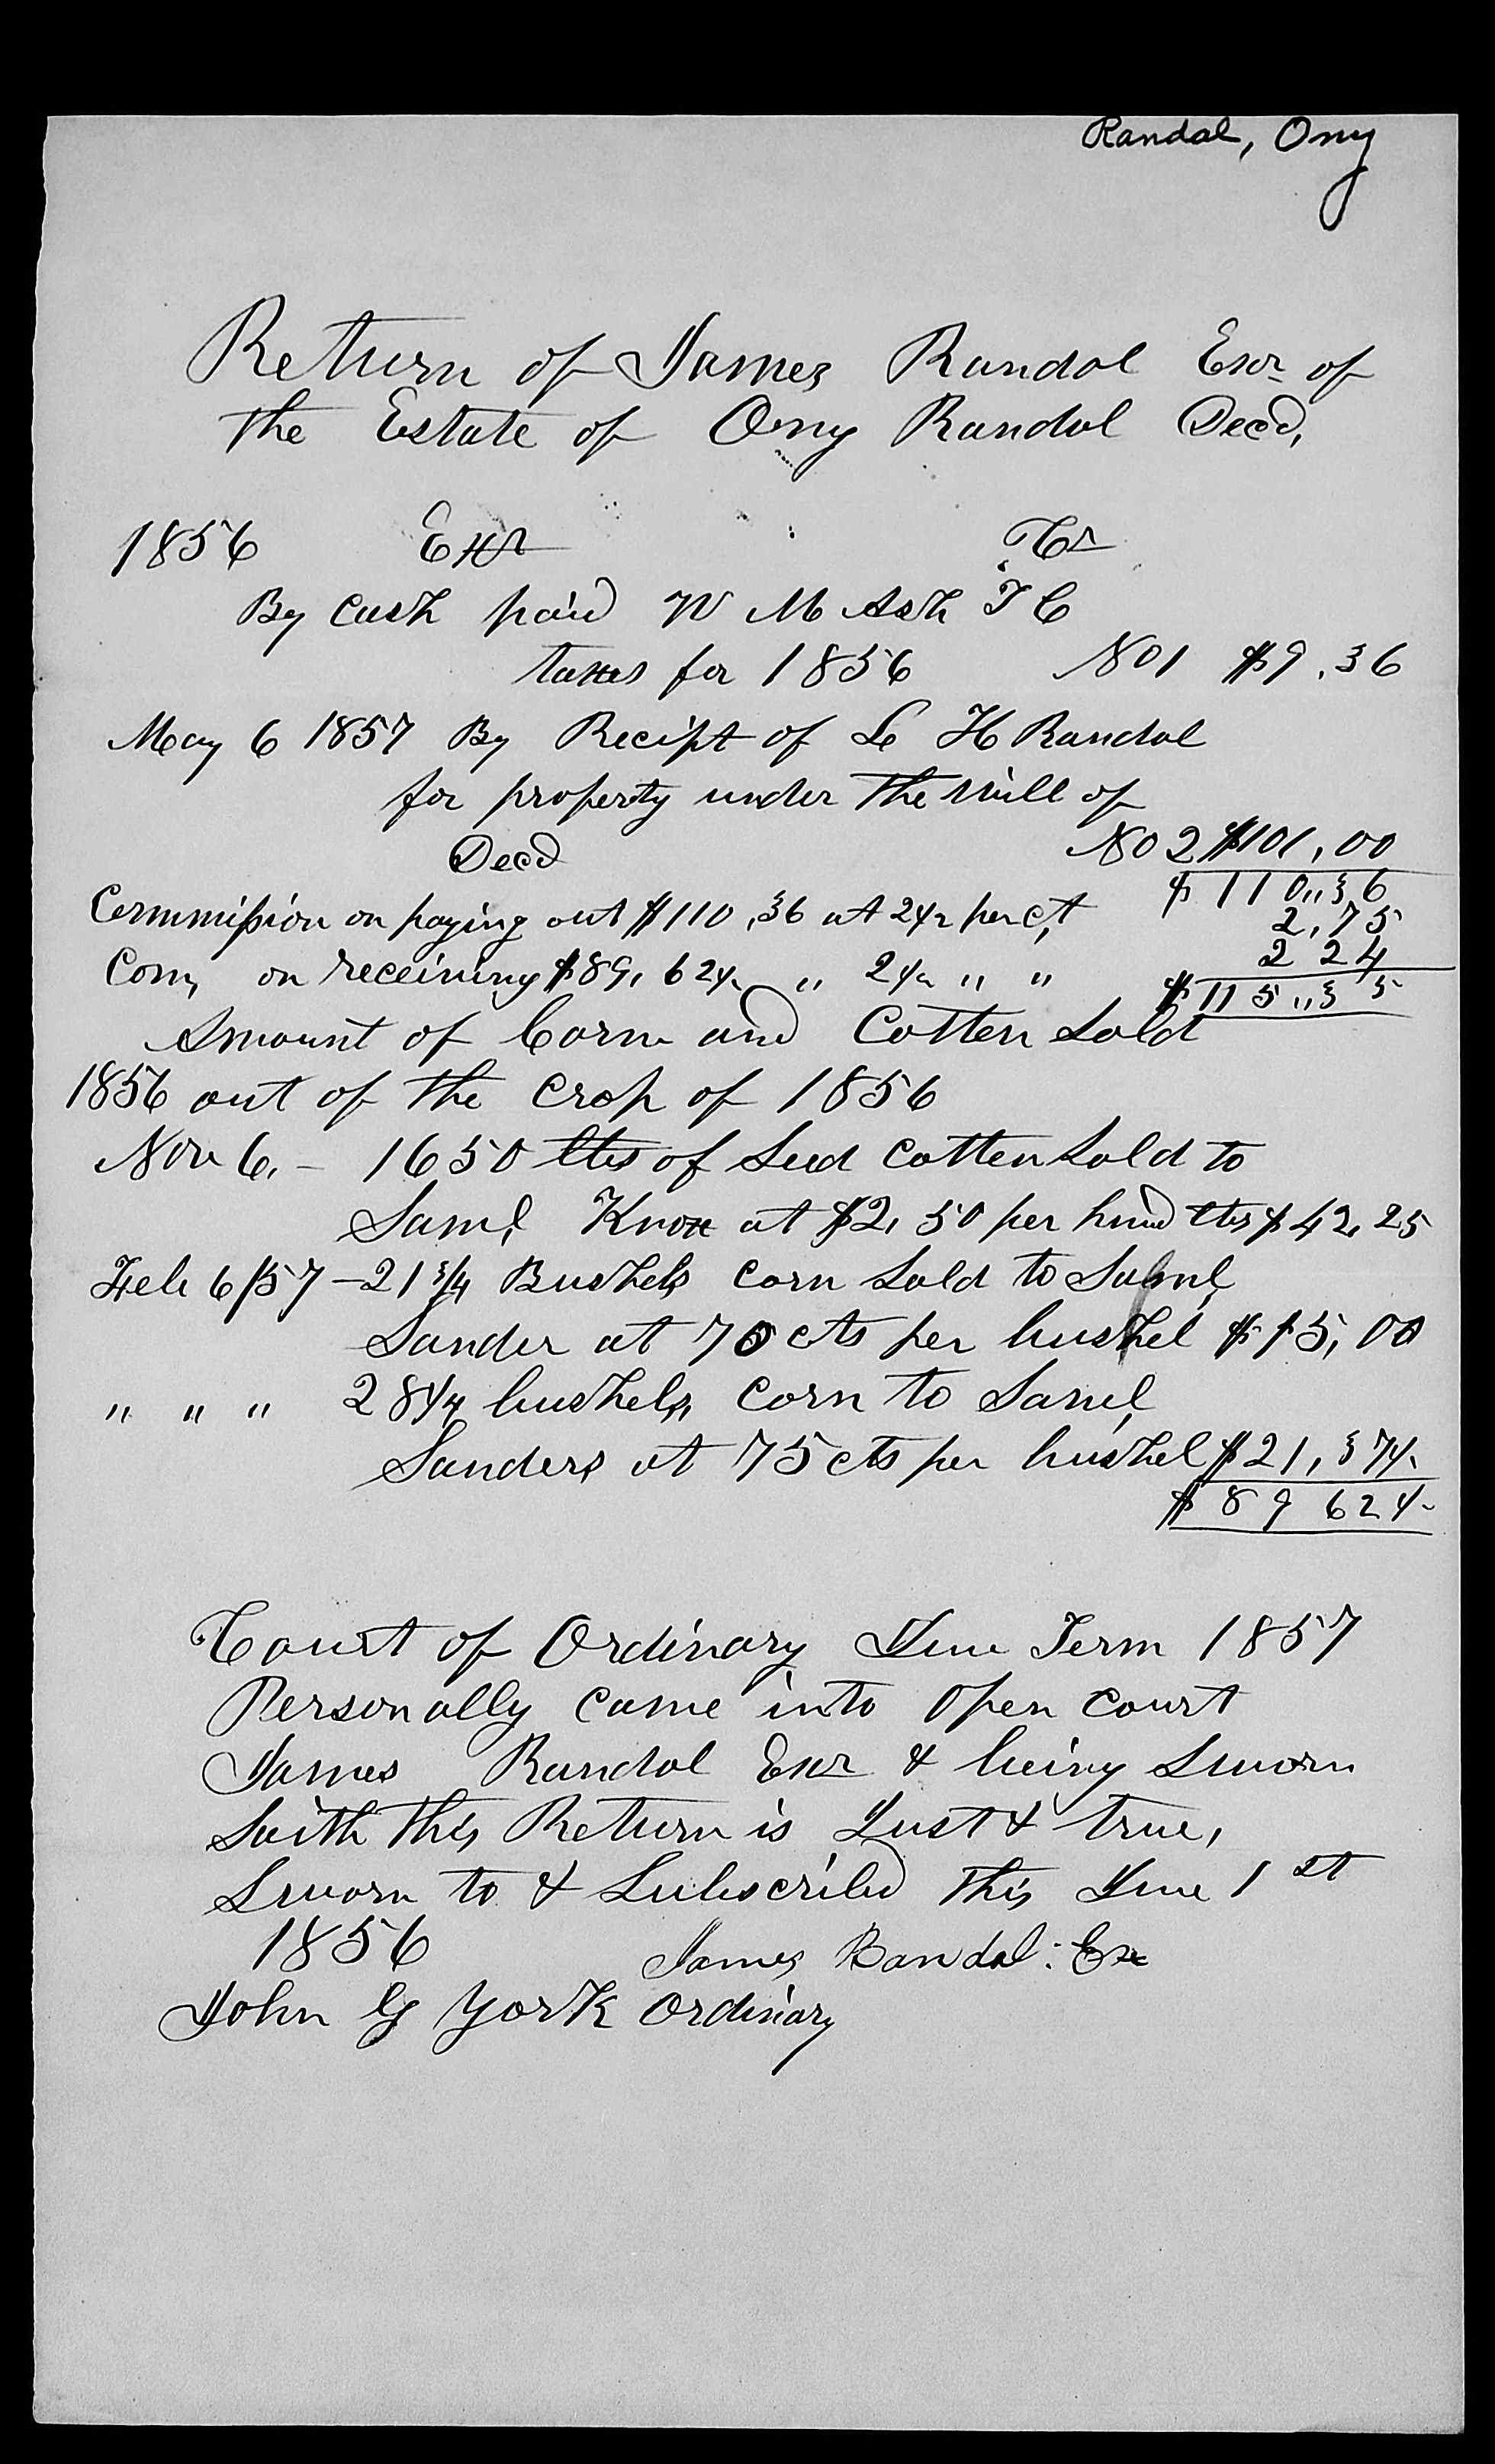 Randal, Ony
Return of James Randal Exor of
the Estate of Ony Randal Decd,
1856 Exr Cr
By cash paid W M Ash T C
taxes for 1856 No 1 $9.36
May 6 1857 By Recipt of L H Randal
for property under the Will of
Decd No 2 $101,00
$110,,36
Commission on paying out $110,36 at 2½ per ct, 2,75
Com, on receiving $89,62½ ,, 2½ ,, ,, 2 24
$115,,35
Amount of Corn and Cotten Sold
1856 out of the crop of 1856
Nov 6. – 1650 lbs of Seed cotten Sold to
Saml Knox at $2,50 per hund lbs $42,25
Feb 6/57 – 21¾ Bushels corn Sold to Saml
Sander at 70 cts per bushel $15,00
,, ,, ,, 28¼ bushels, corn to Saml
Sanders at 75 cts per bushel $21,37½
$89 62½
Court of Ordinary June Term 1857
Personally came into open court
James Randal Exr & being Sworn
Saith this Return is Just & true,
Sworn to & Subscribed this June 1st
1856 James Randal: Ex
John G York Ordinary